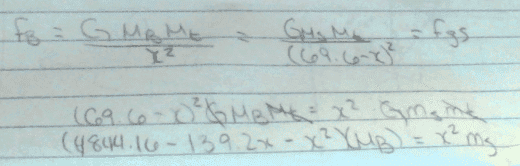 F_B = G M_B M_t / x² = G M_s M_t / (69.6-x)² = F_gs
(69.6-x)² G M_B M_t = x² G m_s m_t
(4844.16 - 139.2x - x²)(M_B) = x² m_s